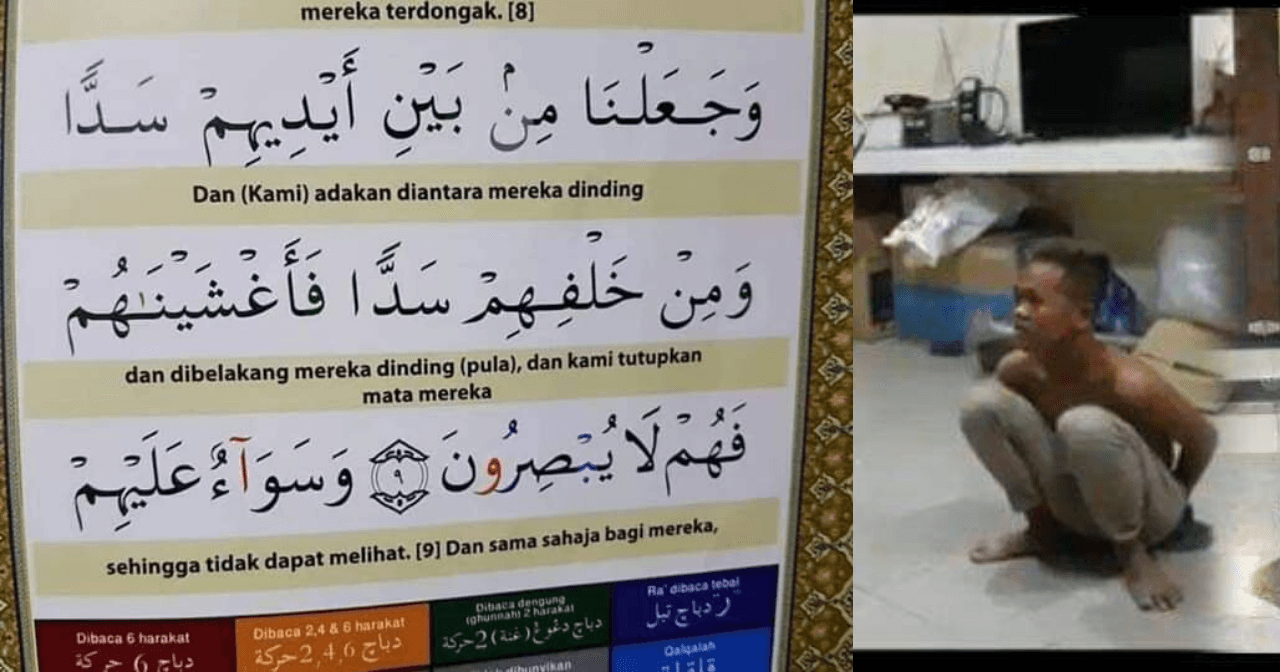 mereka terdongak. [8]
وَجَعَلْنَا مِنْ بَيْنِ أَيْدِيهِمْ سَدًّا
Dan (Kami) adakan diantara mereka dinding
وَمِنْ خَلْفِهِمْ سَدًّا فَأَغْشَيْنَٰهُمْ
dan dibelakang mereka dinding (pula), dan kami tutupkan
mata mereka
فَهُمْ لَا يُبْصِرُونَ ٩ وَسَوَآءٌ عَلَيْهِمْ
sehingga tidak dapat melihat. [9] Dan sama sahaja bagi mereka,
Dibaca 6 harakat
دباچ 6 حركة
Dibaca 2,4 & 6 harakat
دباچ 2,4,6 حركة
Dibaca dengung
(ghunnah) 2 harakat
دباچ دڠوڠ (غنة) 2 حركة
Ra' dibaca tebal
ر دباچ تبل
Qalqalah
قلقلة